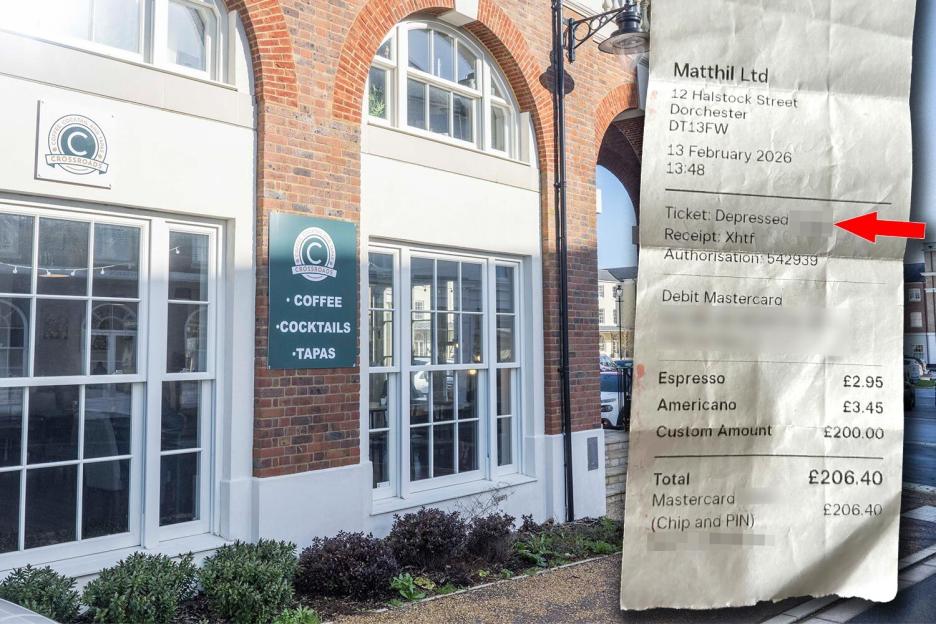 COFFEE, COCKTAIL
C
CROSSROADS
C
CROSSROADS
· COFFEE
·COCKTAILS
·TAPAS
Matthil Ltd
12 Halstock Street
Dorchester
DT13FW
13 February 2026
13:48
Ticket: Depressed
Receipt: Xhtf
Authorisation: 542939
Debit Mastercard
Espresso £2.95
Americano £3.45
Custom Amount £200.00
Total £206.40
Mastercard £206.40
(Chip and PIN)